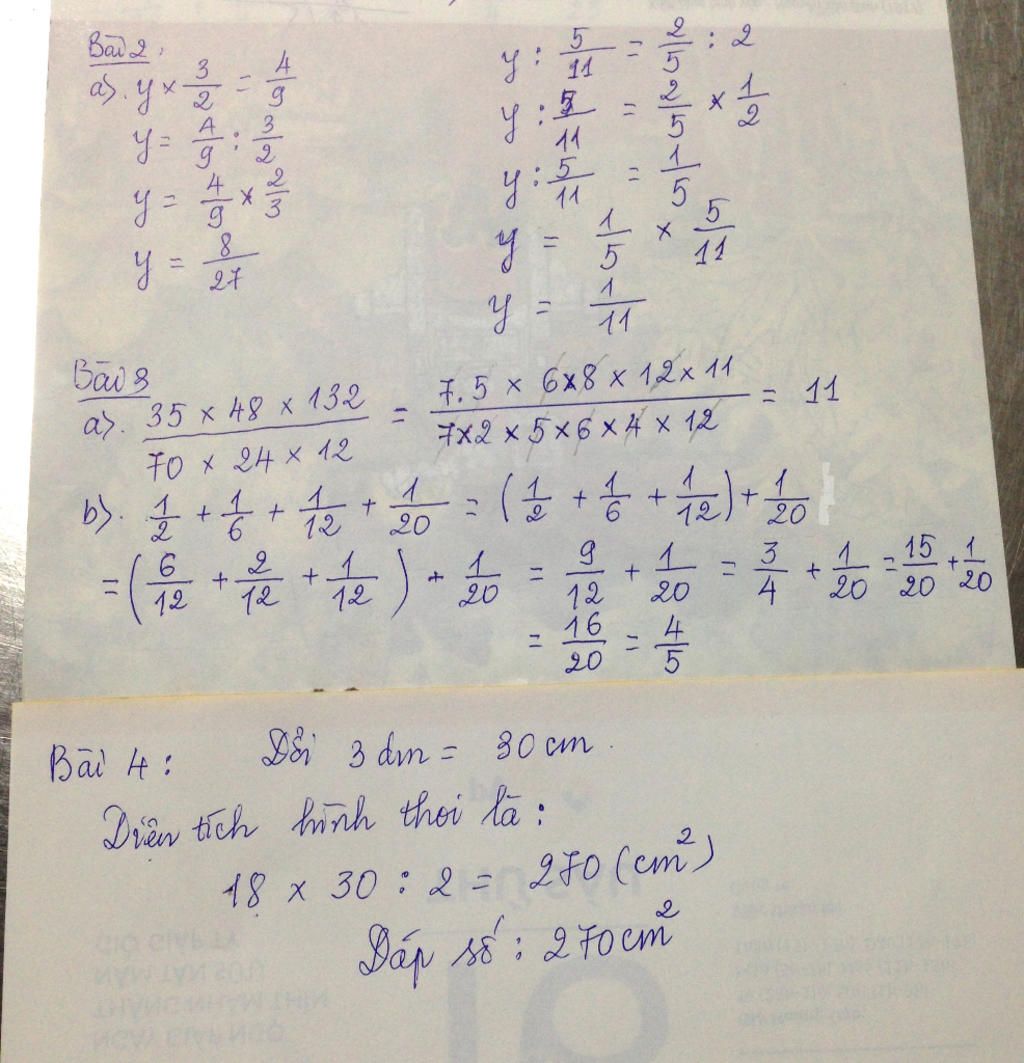 Bài 2:
a). y × 3/2 = 4/9
y = 4/9 : 3/2
y = 4/9 × 2/3
y = 8/27
y : 5/11 = 2/5 : 2
y : 5/11 = 2/5 × 1/2
y : 5/11 = 1/5
y = 1/5 × 5/11
y = 1/11
Bài 3
a). (35 × 48 × 132)/(70 × 24 × 12) = (7.5 × 6×8 × 12×11)/(7×2 × 5×6×4 × 12) = 11
b). 1/2 + 1/6 + 1/12 + 1/20 = (1/2 + 1/6 + 1/12) + 1/20
= (6/12 + 2/12 + 1/12) + 1/20 = 9/12 + 1/20 = 3/4 + 1/20 = 15/20 + 1/20
= 16/20 = 4/5
Bài 4: Đổi 3 dm = 30 cm.
Diện tích hình thoi là:
18 × 30 : 2 = 270 (cm²)
Đáp số: 270 cm²